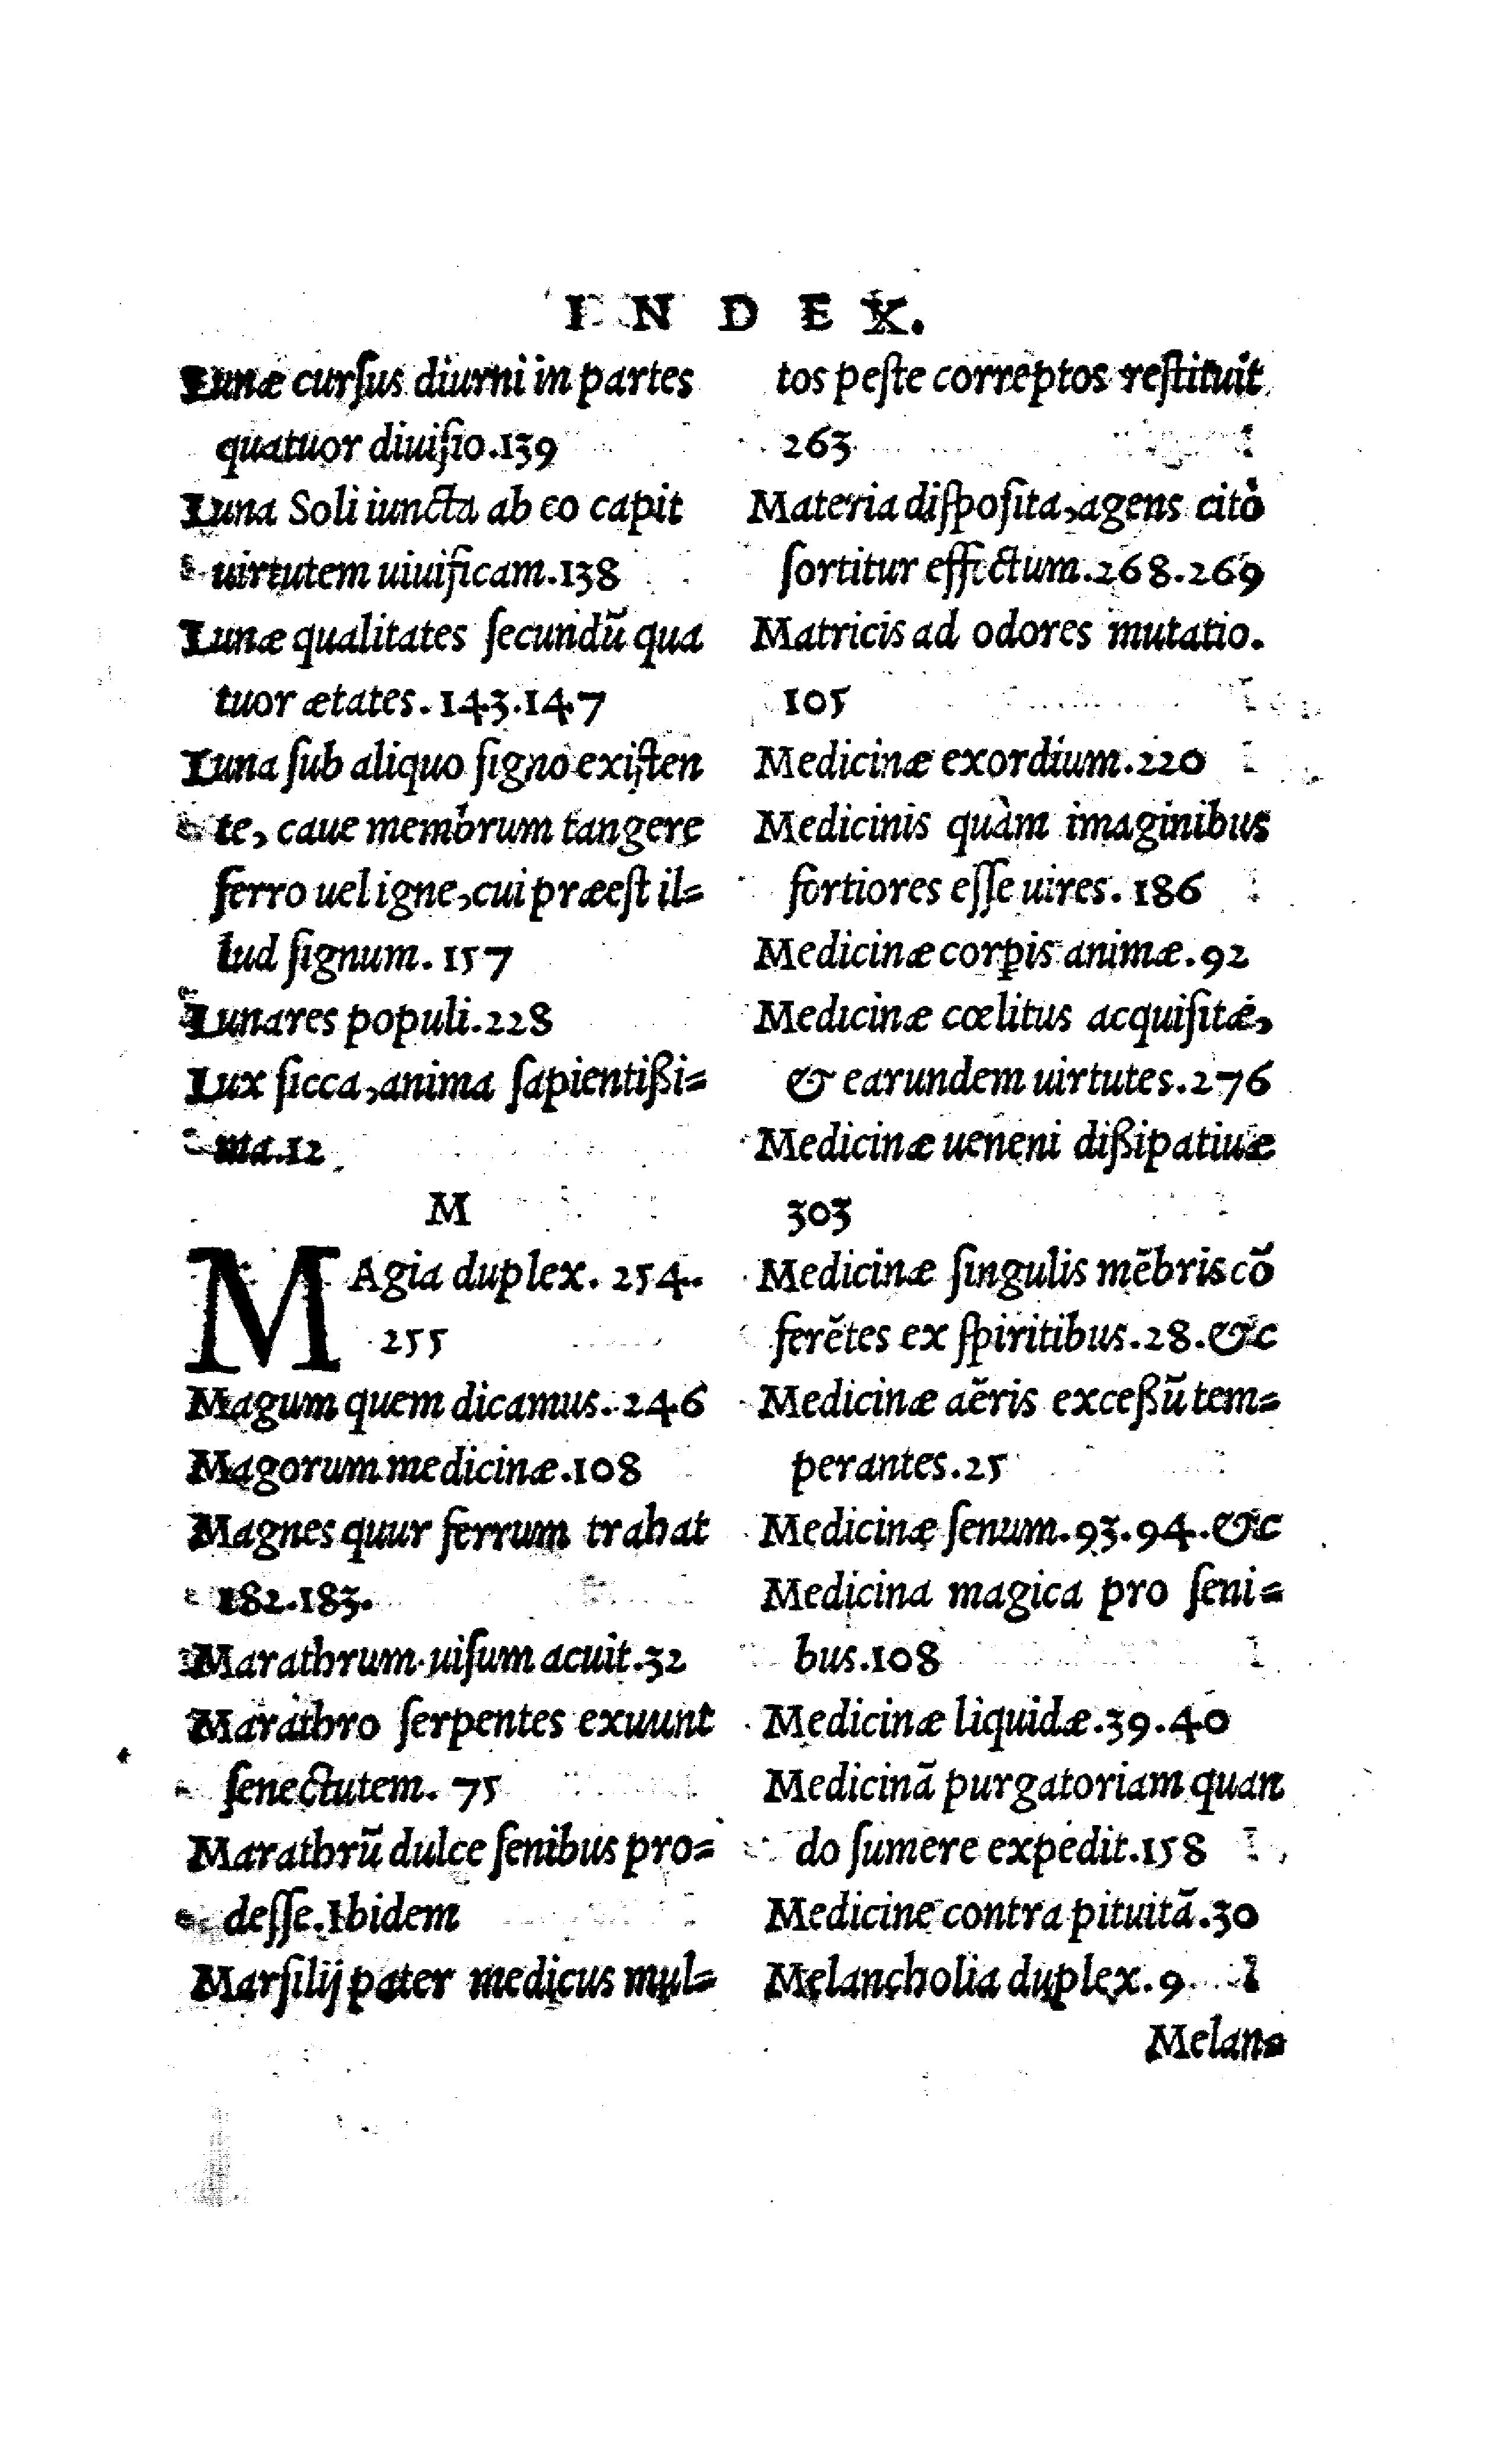 INDEX.
Lunæ curſus diurni in partes
quatuor diuiſio.139
Luna Soli iuncta ab eo capit
uirtutem uiuificam.138
Lunæ qualitates ſecundũ qua
tuor ætates.143.147
Luna ſub aliquo ſigno exiſten
te, caue membrum tangere
ferro uel igne, cui præeſt il=
lud ſignum.157
Lunares populi.228
Lux ſicca, anima ſapientißi=
ma.12
M
MAgia duplex. 254.
255
Magum quem dicamus. 246
Magorum medicinæ.108
Magnes quur ferrum trahat
182.183.
Marathrum uiſum acuit.32
Marathro ſerpentes exuunt
ſenectutem. 75
Marathrũ dulce ſenibus pro=
deſſe. Ibidem
Marſilij pater medicus mul=
tos peſte correptos reſtituit
263
Materia diſpoſita, agens citò
ſortitur effectum.268.269
Matricis ad odores mutatio.
105
Medicinæ exordium.220
Medicinis quàm imaginibus
fortiores eſſe uires. 186
Medicinæ corꝑis animæ.92
Medicinæ cœlitus acquiſitæ,
& earundem uirtutes.276
Medicinæ ueneni dißipatiuæ
303
Medicinæ ſingulis mẽbris cõ
ferẽtes ex ſpiritibus.28.&c
Medicinæ aëris exceßũ tem=
perantes.25
Medicinæ ſenum.93.94.&c
Medicina magica pro ſeni=
bus.108
Medicinæ liquidæ.39.40
Medicinã purgatoriam quan
do ſumere expedit.158
Medicine contra pituitã.30
Melancholia duplex.9
Melan=